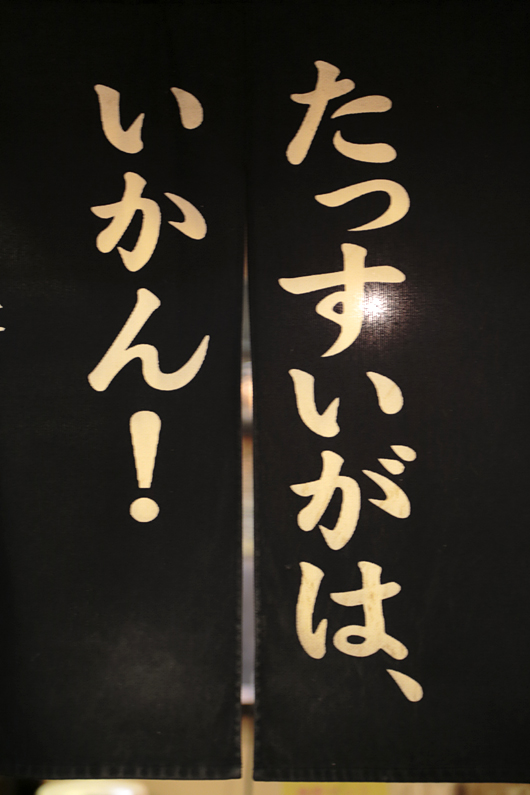 たっすいがは、
いかん！